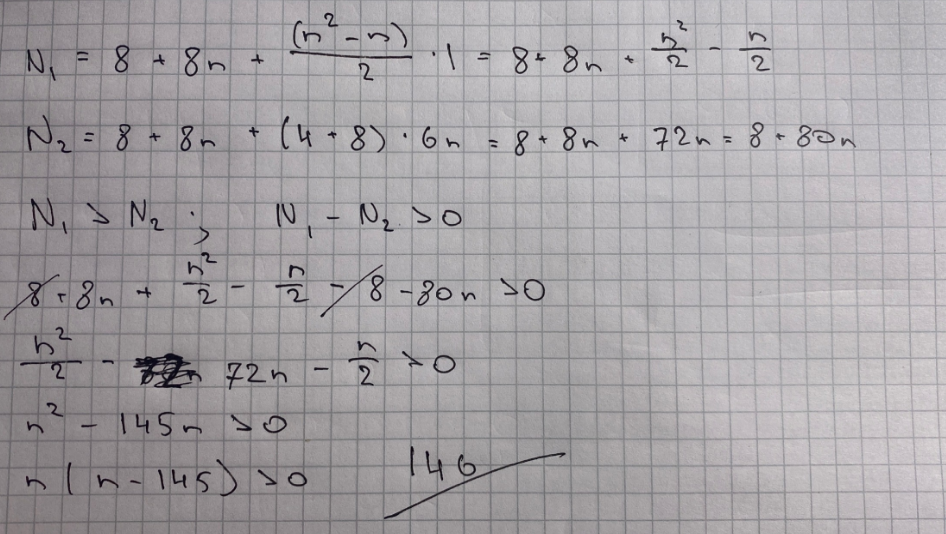 N₁ = 8 + 8n + (n² - n)/2 · 1 = 8 + 8n + n²/2 - n/2
N₂ = 8 + 8n + (4 + 8) · 6n = 8 + 8n + 72n = 8 + 80n
N₁ > N₂ ; N₁ - N₂ > 0
8 + 8n + n²/2 - n/2 - 8 - 80n > 0
n²/2 - 72n - n/2 > 0
n² - 145n > 0
n(n - 145) > 0 146